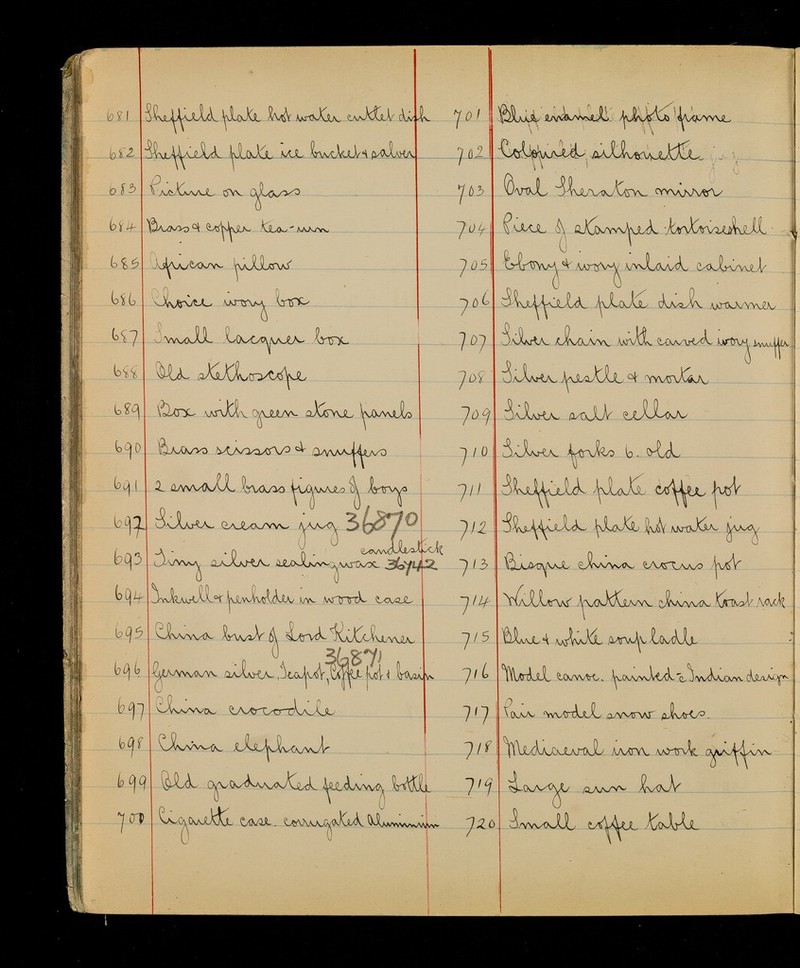 681 Sheffield plate hot water cutlet dish
682 Sheffield plate ice bucket & salver
683 Picture on glass
684 Brass & copper tea-urn
685 African pillow
686 Choice ivory box
687 Small lacquer box
688 Old stethoscope
689 Box with green stone panels
690 Brass scissors & snuffers
691 2 small brass figures of boys
692 Silver cream jug 36870
candlestick
693 Tiny silver sealing wax 36742
694 Inkwell & penholder in wood case
695 China bust of Lord Kitchener
36871
696 German silver, Teapot, Coffee pot & basin
697 China crocodile
698 China elephant
699 Old graduated feeding bottle
700 Cigarette case. corrugated Aluminium
701 Blue enamel photo frame
702 Coloured silhouette
703 Oval Sheraton mirror
704 Piece of stamped tortoiseshell
705 Ebony & ivory inlaid cabinet
706 Sheffield plate dish warmer
707 Silver chain with carved ivory snuffer
708 Silver pestle & mortar
709 Silver salt cellar
710 Silver forks 6. old
711 Sheffield plate coffee pot
712 Sheffield plate hot water jug
713 Bisque china crocus pot
714 Willow pattern china toast rack
715 Blue & white soup ladle
716 Model canoe. painted c̄ Indian design
717 Pair model snow shoes.
718 Mediaeval iron work griffin
719 Large sun hat
720 Small coffee table